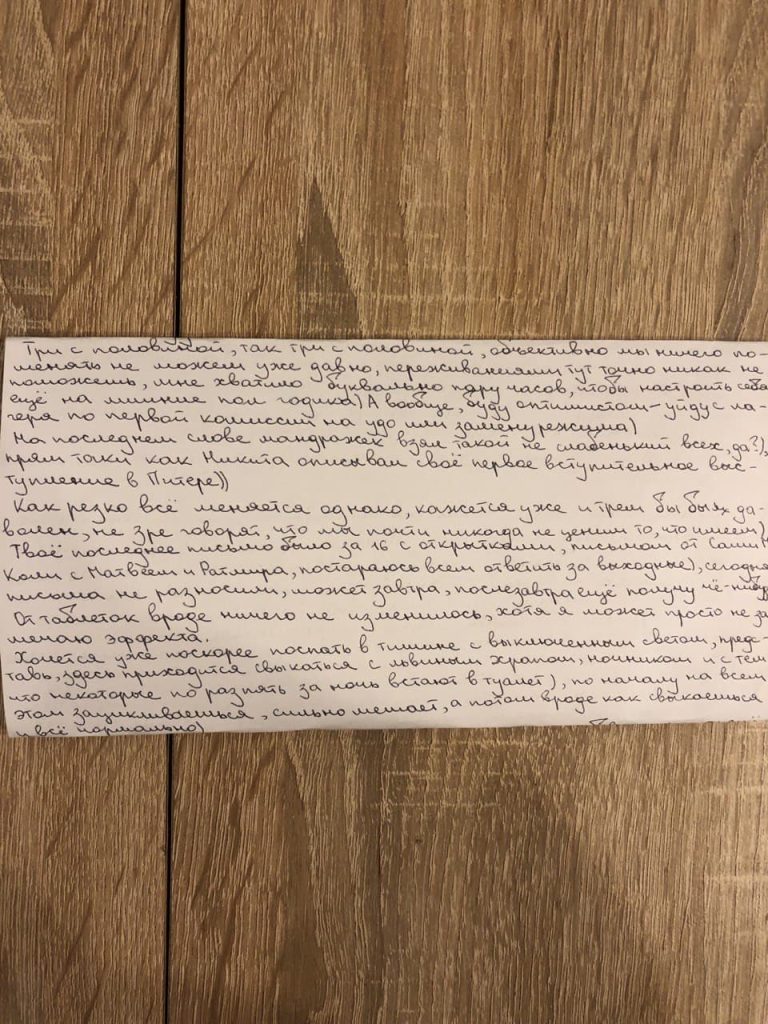 Три с половиной, так три с половиной, объективно мы ничего по-
менять не можем уже давно, переживаниями тут точно никак не
поможешь, мне хватило буквально пару часов, чтобы настроить себя
ещё на лишние пол годика) А вообще, буду оптимистом - уйду с ла-
геря по первой комиссии на удо или замену режима)
На последнем слове мандражек взял такой не слабенький всех, да?),
прям таки как Никита описывал своё первое вступительное выс-
тупление в Питере))
Как резко всё меняется однако, кажется уже и трем бы был да-
волен, не зре говорят, что мы почти никогда не ценим то, что имеем)
Твоё последнее письмо было за 16 с открытками, письмом от Саши
Коли с Матвеем и Ратмира, постараюсь всем ответить за выходные), сегодня
письма не разносили, может завтра, послезавтра ещё получу чё-нибудь
От таблеток вроде ничего не изменилось, хотя я может просто не за
мечаю эффекта.
Хочется уже поскорее поспать в тишине с выключенным светом, предс-
тавь, здесь приходится свыкаться с львиным храпом, ночником и с тем
что некоторые по раз пять за ночь встают в туалет), по началу на всем
этом зацикливаешься, сильно мешает, а потом вроде как свыкаешься
и всё нормально)